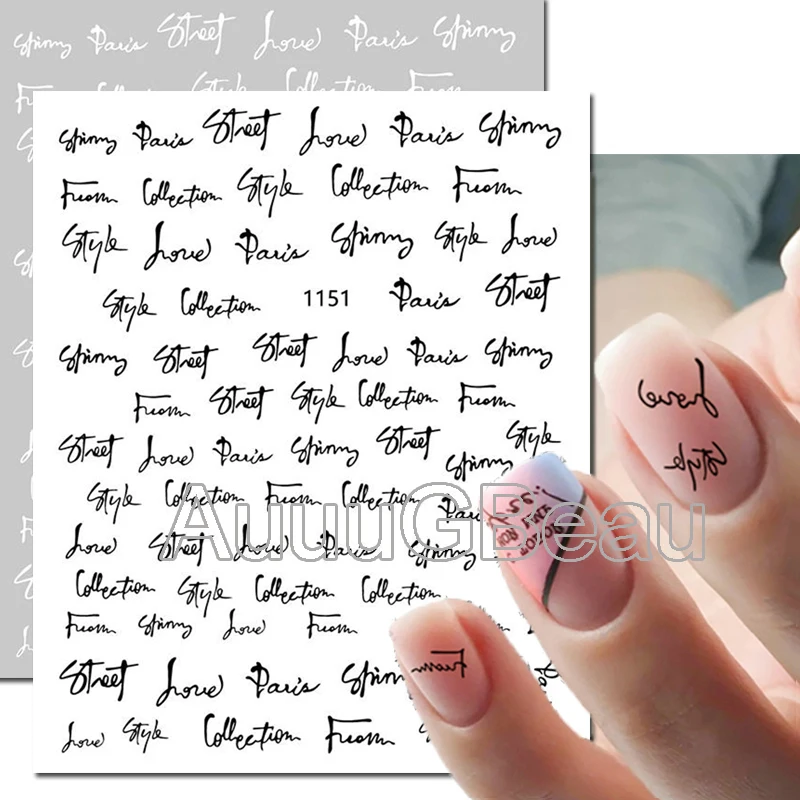 Spinny Paris Street Loue Paris Spinny
Fuom Style Collection Fuom
Spinny Paris Street Loue Paris Spinny
Fuom Collection Style Collection Fuom
Style Loue Paris Spinny Style Loue
Style Collection 1151 Paris Street
Spinny Street Street Loue Paris Spinny
Fuom Street Style Collection Fuom
Street Loue Paris Spinny Street Style
Spinny
Style Collection Fuom Collection
Loue Street Paris Spinny
Collection Style Collection Collection
Fuom Spinny Loue Fuom
Street Loue Paris
Loue Style Collection Fuom
AuuuGBeau
Loue
Style
Fuom